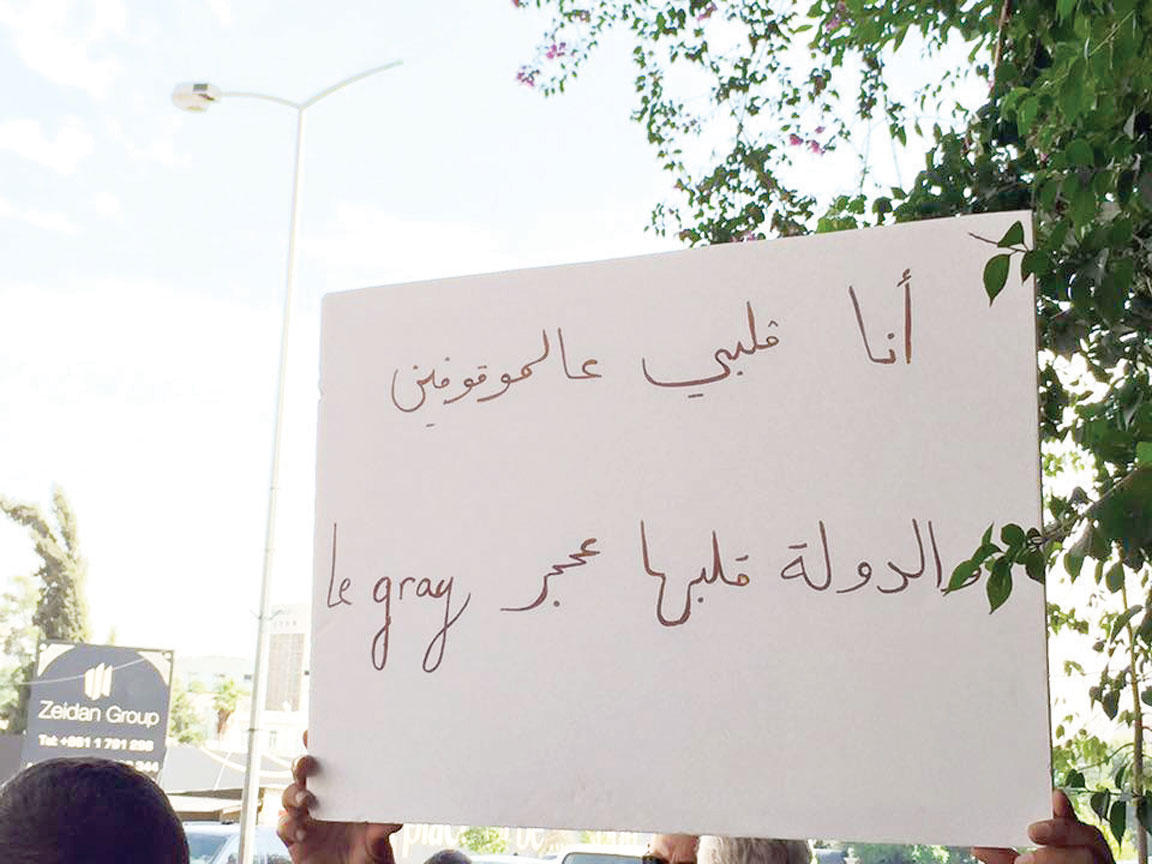 أنا قلبي عالموقوفين
والدولة قلبها عحجر le gray
Zeidan Group
Tel: +961 1 791 298